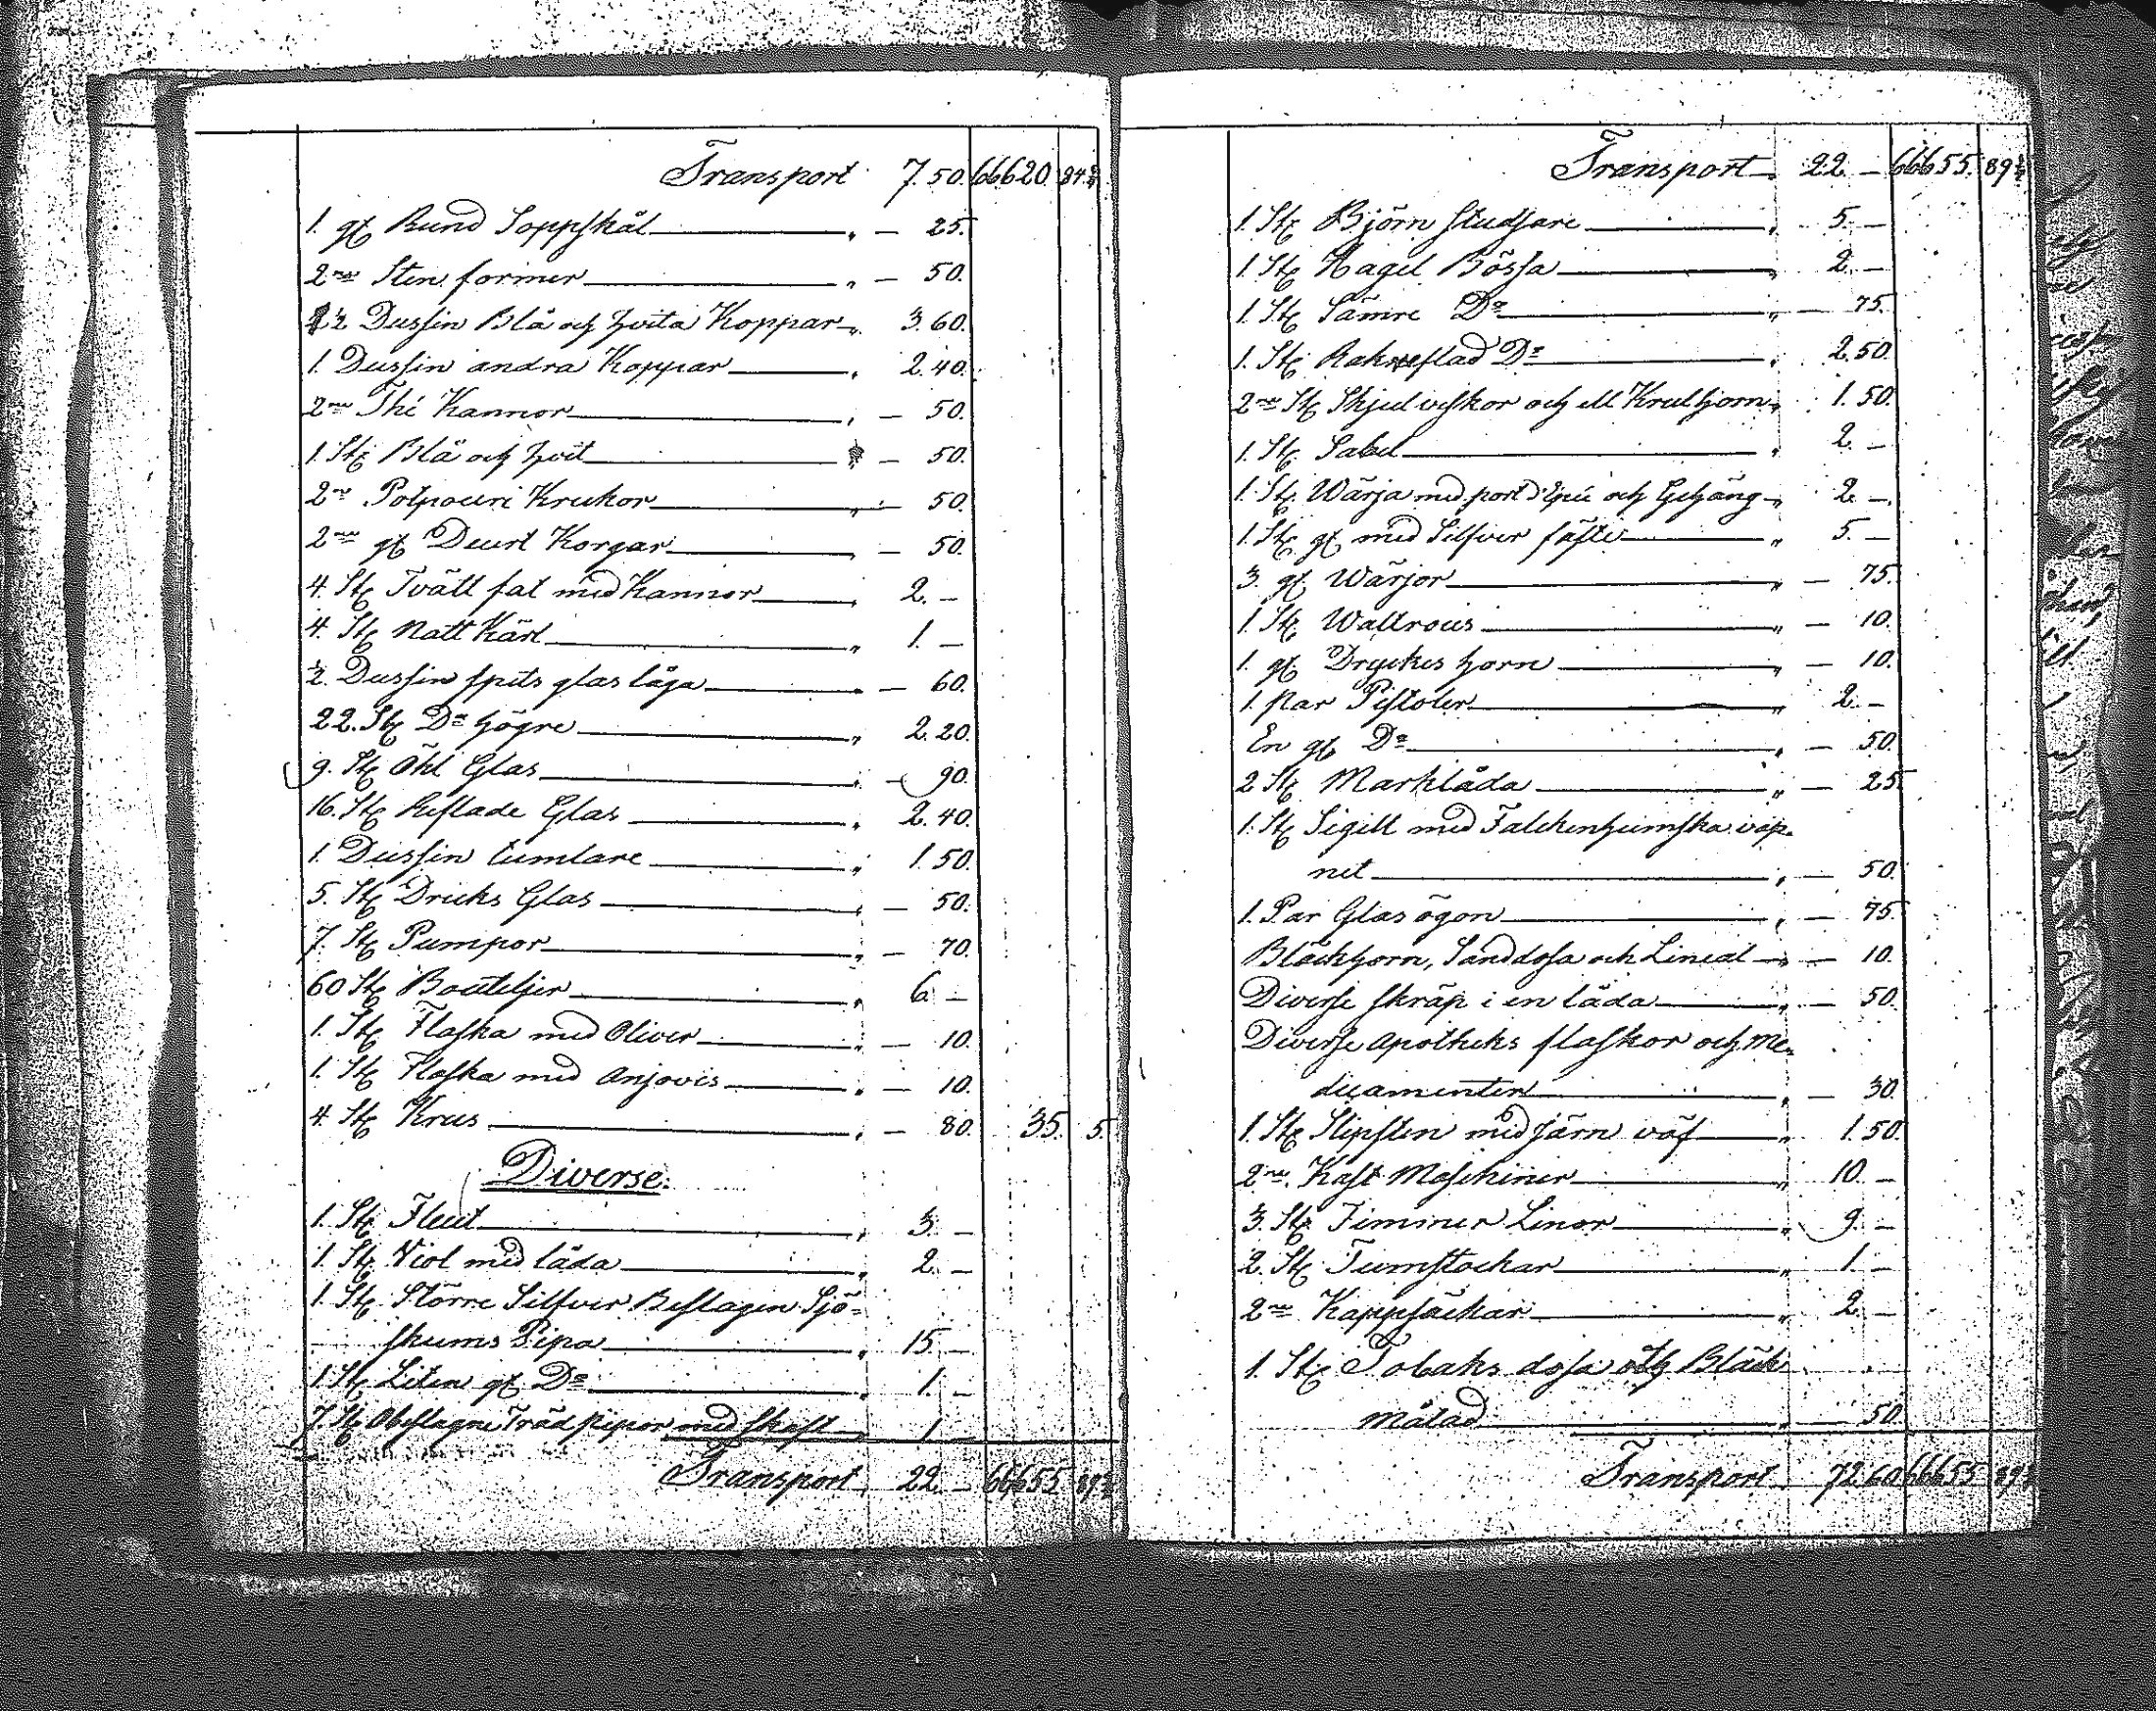 Transport 7.50. 66620 84½
1. gl Rund Soppskål — 25.
2ne Sten former — 50.
1½ Dussin Blå och hvita Koppar 3.60.
1. Dussin andra Koppar 2.40.
2ne Thé Kannor — 50.
1. St. Blå och hvit — 50.
2ne Potpouri Krukor — 50.
2ne gl Deurt Korgar — 50.
4. St. Tvätt fat med Kannor 2. —
4. St. Natt Kärl 1. —
½ Dussin spits glas låga — 60.
22. St. Do högre 2.20.
9. St. Öhl Glas — 90.
16. St. Reflade Glas 2.40.
1. Dussin tumlare 1.50.
5. St. Dricks Glas — 50.
7. St. Pumpor — 70.
60 St. Bouteljer 6. —
1. St. Flaska med Oliver — 10.
1. St. Flaska med Anjovis — 10.
4. St. Krus — 80. 35. 5.
Diverse.
1. St. Fleut 3. —
1. St. Viol med låda 2. —
1. St. Större Silfver Beslagen Sjö-
skums Pipa 15. —
1 St. Liten gl. Do 1. —
7. St. Obeslagne Träd pipor med skaft 1. —
Transport 22. — 66655 89½
Transport 22. — 66655. 89½
1. St. Björn Studsare 5. —
1. St. Hagel Bössa 2. —
1. St. Sämre Do — 75.
1. St. Do 2.50.
2ne St. väskor och ett Kruthorn 1.50.
1. St. Sabel 2. —
1. St. Wärja med port d'Epée och Gehäng 2. —
1. St. gl. med Silfver fäste 5. —
3. gl. Wärjor — 75.
1. St. Waltrous — 10.
1. gl. Dryckes horn — 10.
1. par Pistoler 2. —
En gl Do — 50.
2 St. Marklåda — 25.
1. St. Sigill med Falckenheimska vap-
net — 50.
1. Par Glas ögon — 75.
Bläckhorn, Sanddosa och Lineal — 10.
Diverse skräp i en låda — 50.
Diverse Apotheks flaskor och Me-
dicamenter — 30.
1. St. Slipsten med järn vöf 1.50.
2ne Kast Maschiner 10. —
3. St. Timmer Linor 9. —
2. St. Tumstockar 1. —
2ne Kappsäckar 2. —
1. St. Tobaks dosa och Bläck
målad — 50
Transport 72.60 66655 89½